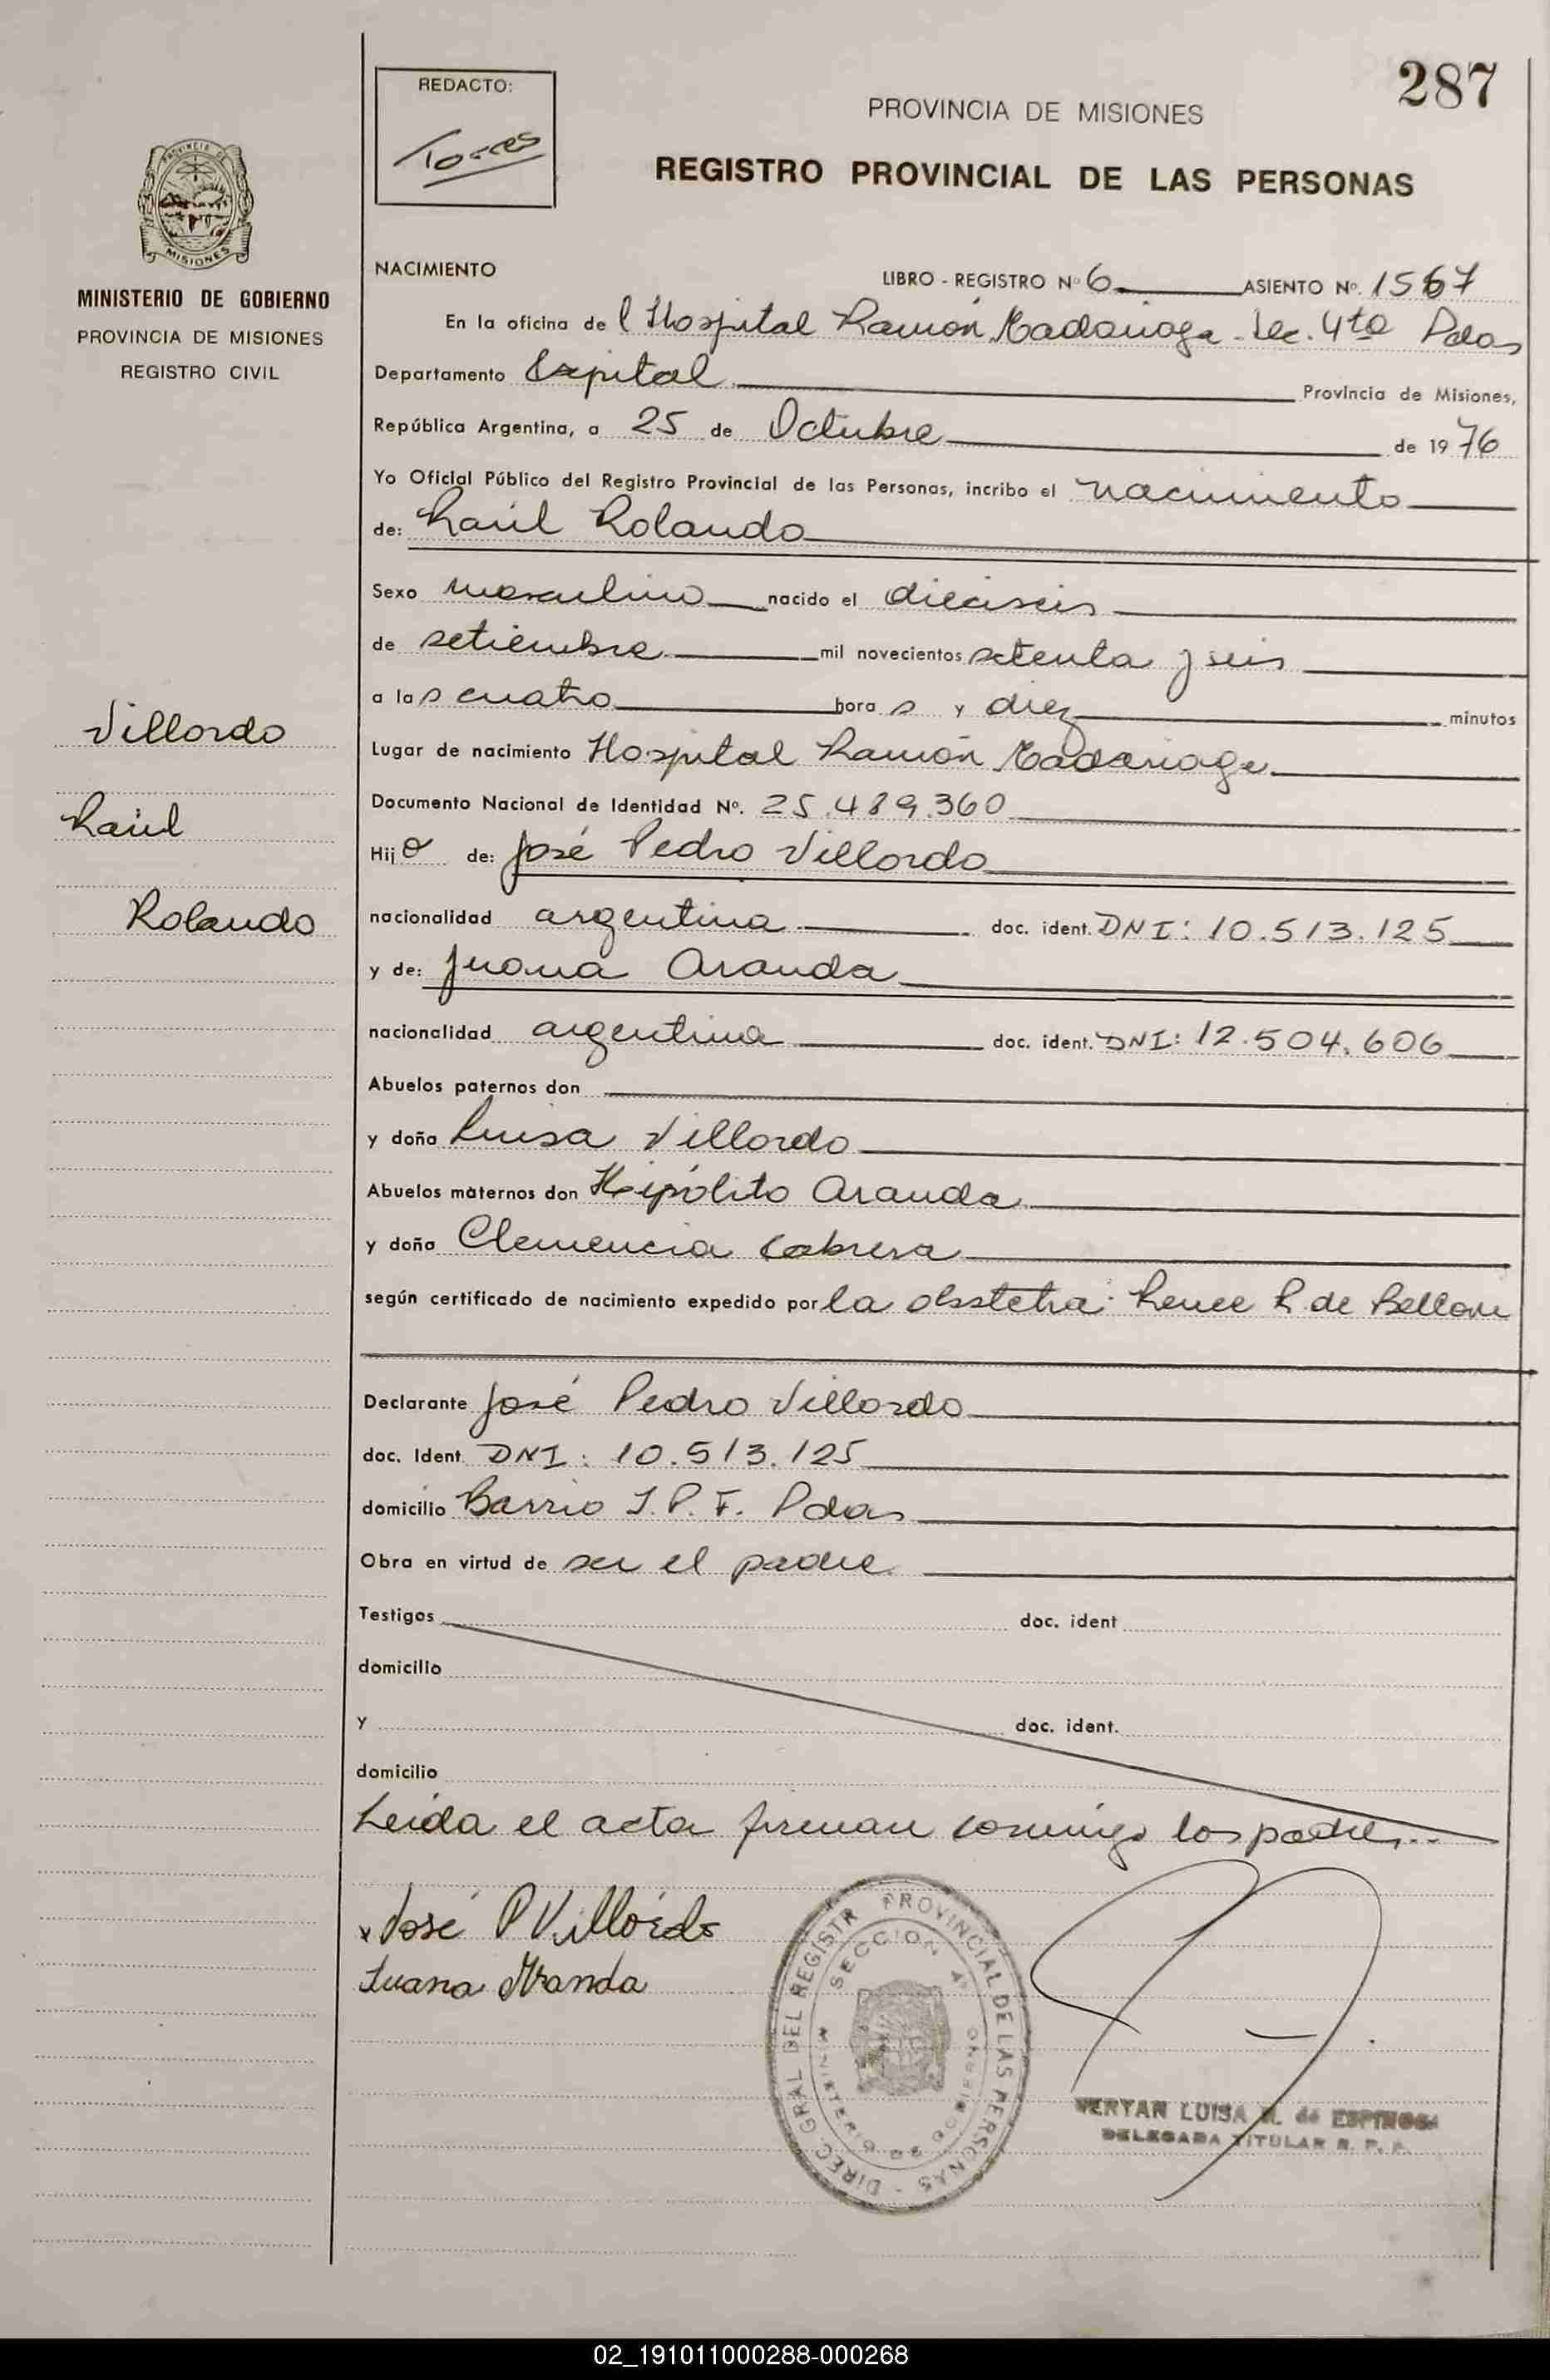 287
REDACTO:
Torres
PROVINCIA DE MISIONES
REGISTRO PROVINCIAL DE LAS PERSONAS
PROVINCIA DE
MISIONES
MINISTERIO DE GOBIERNO
PROVINCIA DE MISIONES
REGISTRO CIVIL
Villordo
Raúl
Rolando
NACIMIENTO
LIBRO - REGISTRO Nº 6 ASIENTO Nº. 1567
En la oficina del Hospital Ramón Madariaga - Sec. 4ta Pdas
Departamento Capital Provincia de Misiones,
República Argentina, a 25 de Octubre de 1976
Yo Oficial Público del Registro Provincial de las Personas, incribo el nacimiento
de: Raúl Rolando
Sexo masculino nacido el dieciseis
de setiembre mil novecientos setenta y seis
a las cuatro hora s y diez minutos
Lugar de nacimiento Hospital Ramón Madariaga
Documento Nacional de Identidad Nº. 25.489.360
Hijo de: José Pedro Villordo
nacionalidad argentina doc. ident. DNI: 10.513.125
y de: Juana Aranda
nacionalidad argentina doc. ident. DNI: 12.504.606
Abuelos paternos don
y doña Luisa Villordo
Abuelos maternos don Hipólito Aranda
y doña Clemencia Cabrera
según certificado de nacimiento expedido por la obstetra: Renee R. de Bellone
Declarante José Pedro Villordo
doc. Ident DNI: 10.513.125
domicilio Barrio I.P.F. Pdas
Obra en virtud de ser el padre
Testigos doc. ident
domicilio
y doc. ident.
domicilio
Leída el acta firman conmigo los padres..
José P Villordo
Juana Aranda
DIREC. GRAL DEL REGISTR PROVINCIAL DE LAS PERSONAS -
SECCION 4ª
MINISTERIO DE GOBIERNO
LUISA M. de ESPINOSA
DELEGADA TITULAR R. P. P.
02_191011000288-000268